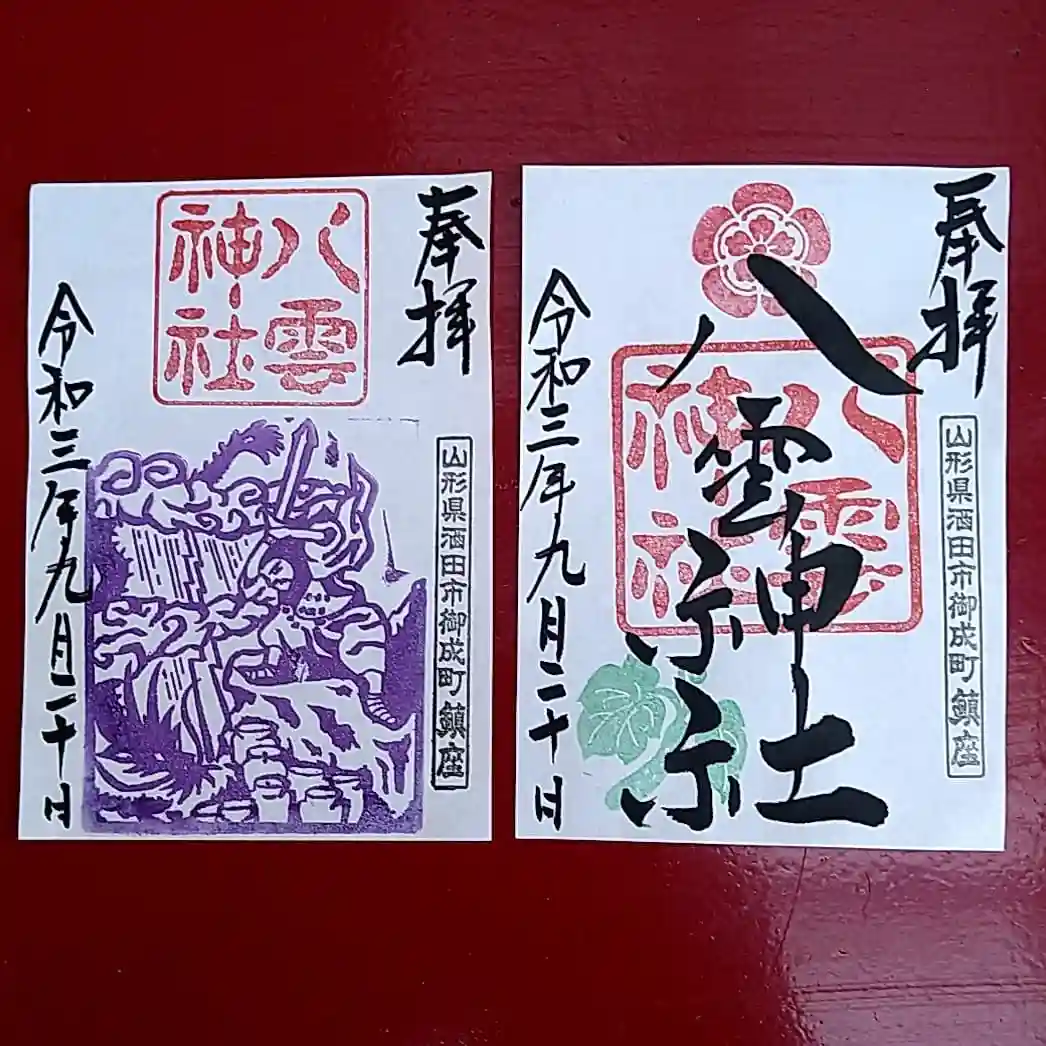 奉拝
八雲
神社
山形県酒田市御成町 鎮座
令和三年九月二十日
奉拝
八雲神社
八雲
神社
山形県酒田市御成町 鎮座
令和三年九月二十日